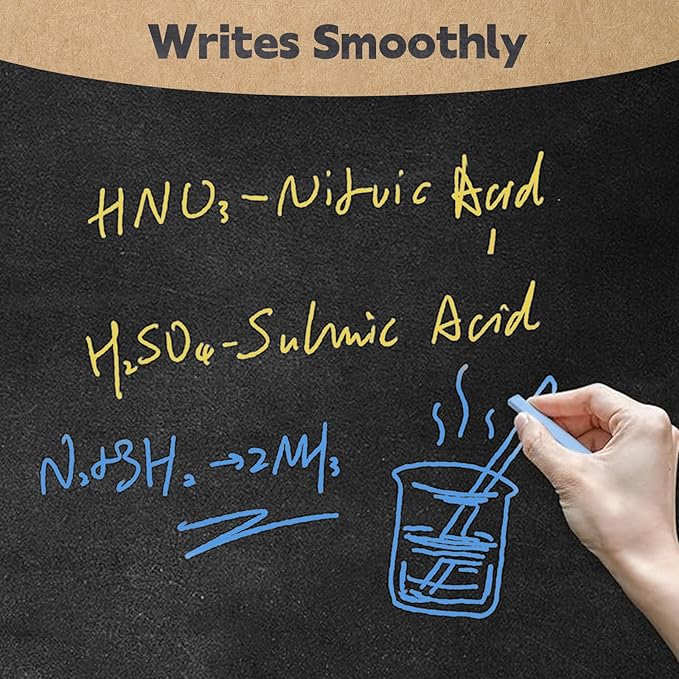 Writes Smoothly
HNO₃-Nitric Acid
H₂SO₄-Sulmic Acid
N₂+3H₂→2NH₃